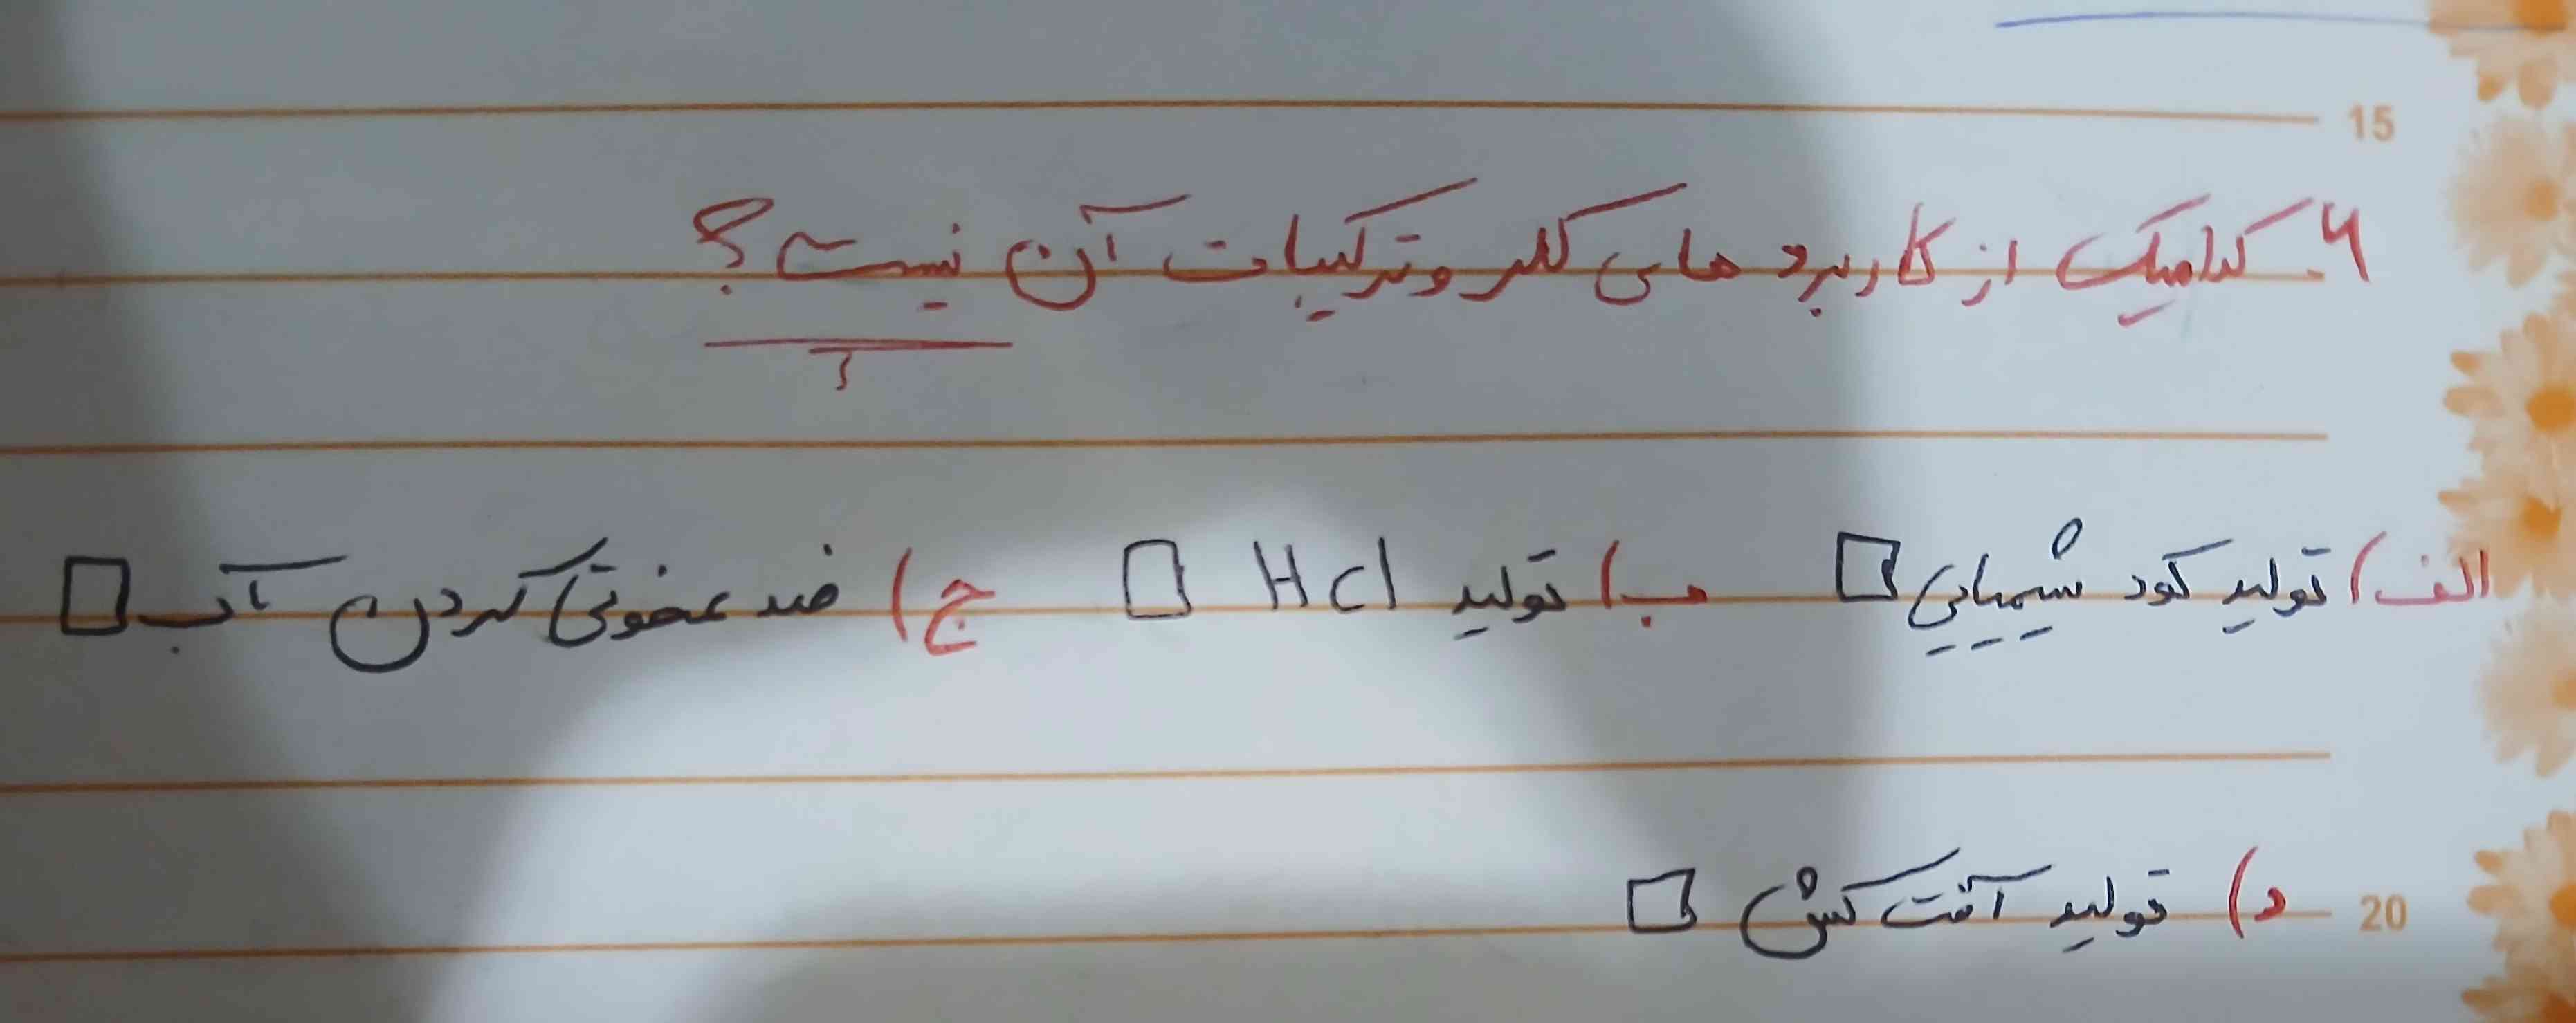 15
۶. کدامیک از کاربرد های کلر و ترکیبات آن نیست؟
الف) تولید کود شیمیایی ب) تولید HCl ج) ضد عفونی کردن آب
د) تولید آفت کش 20